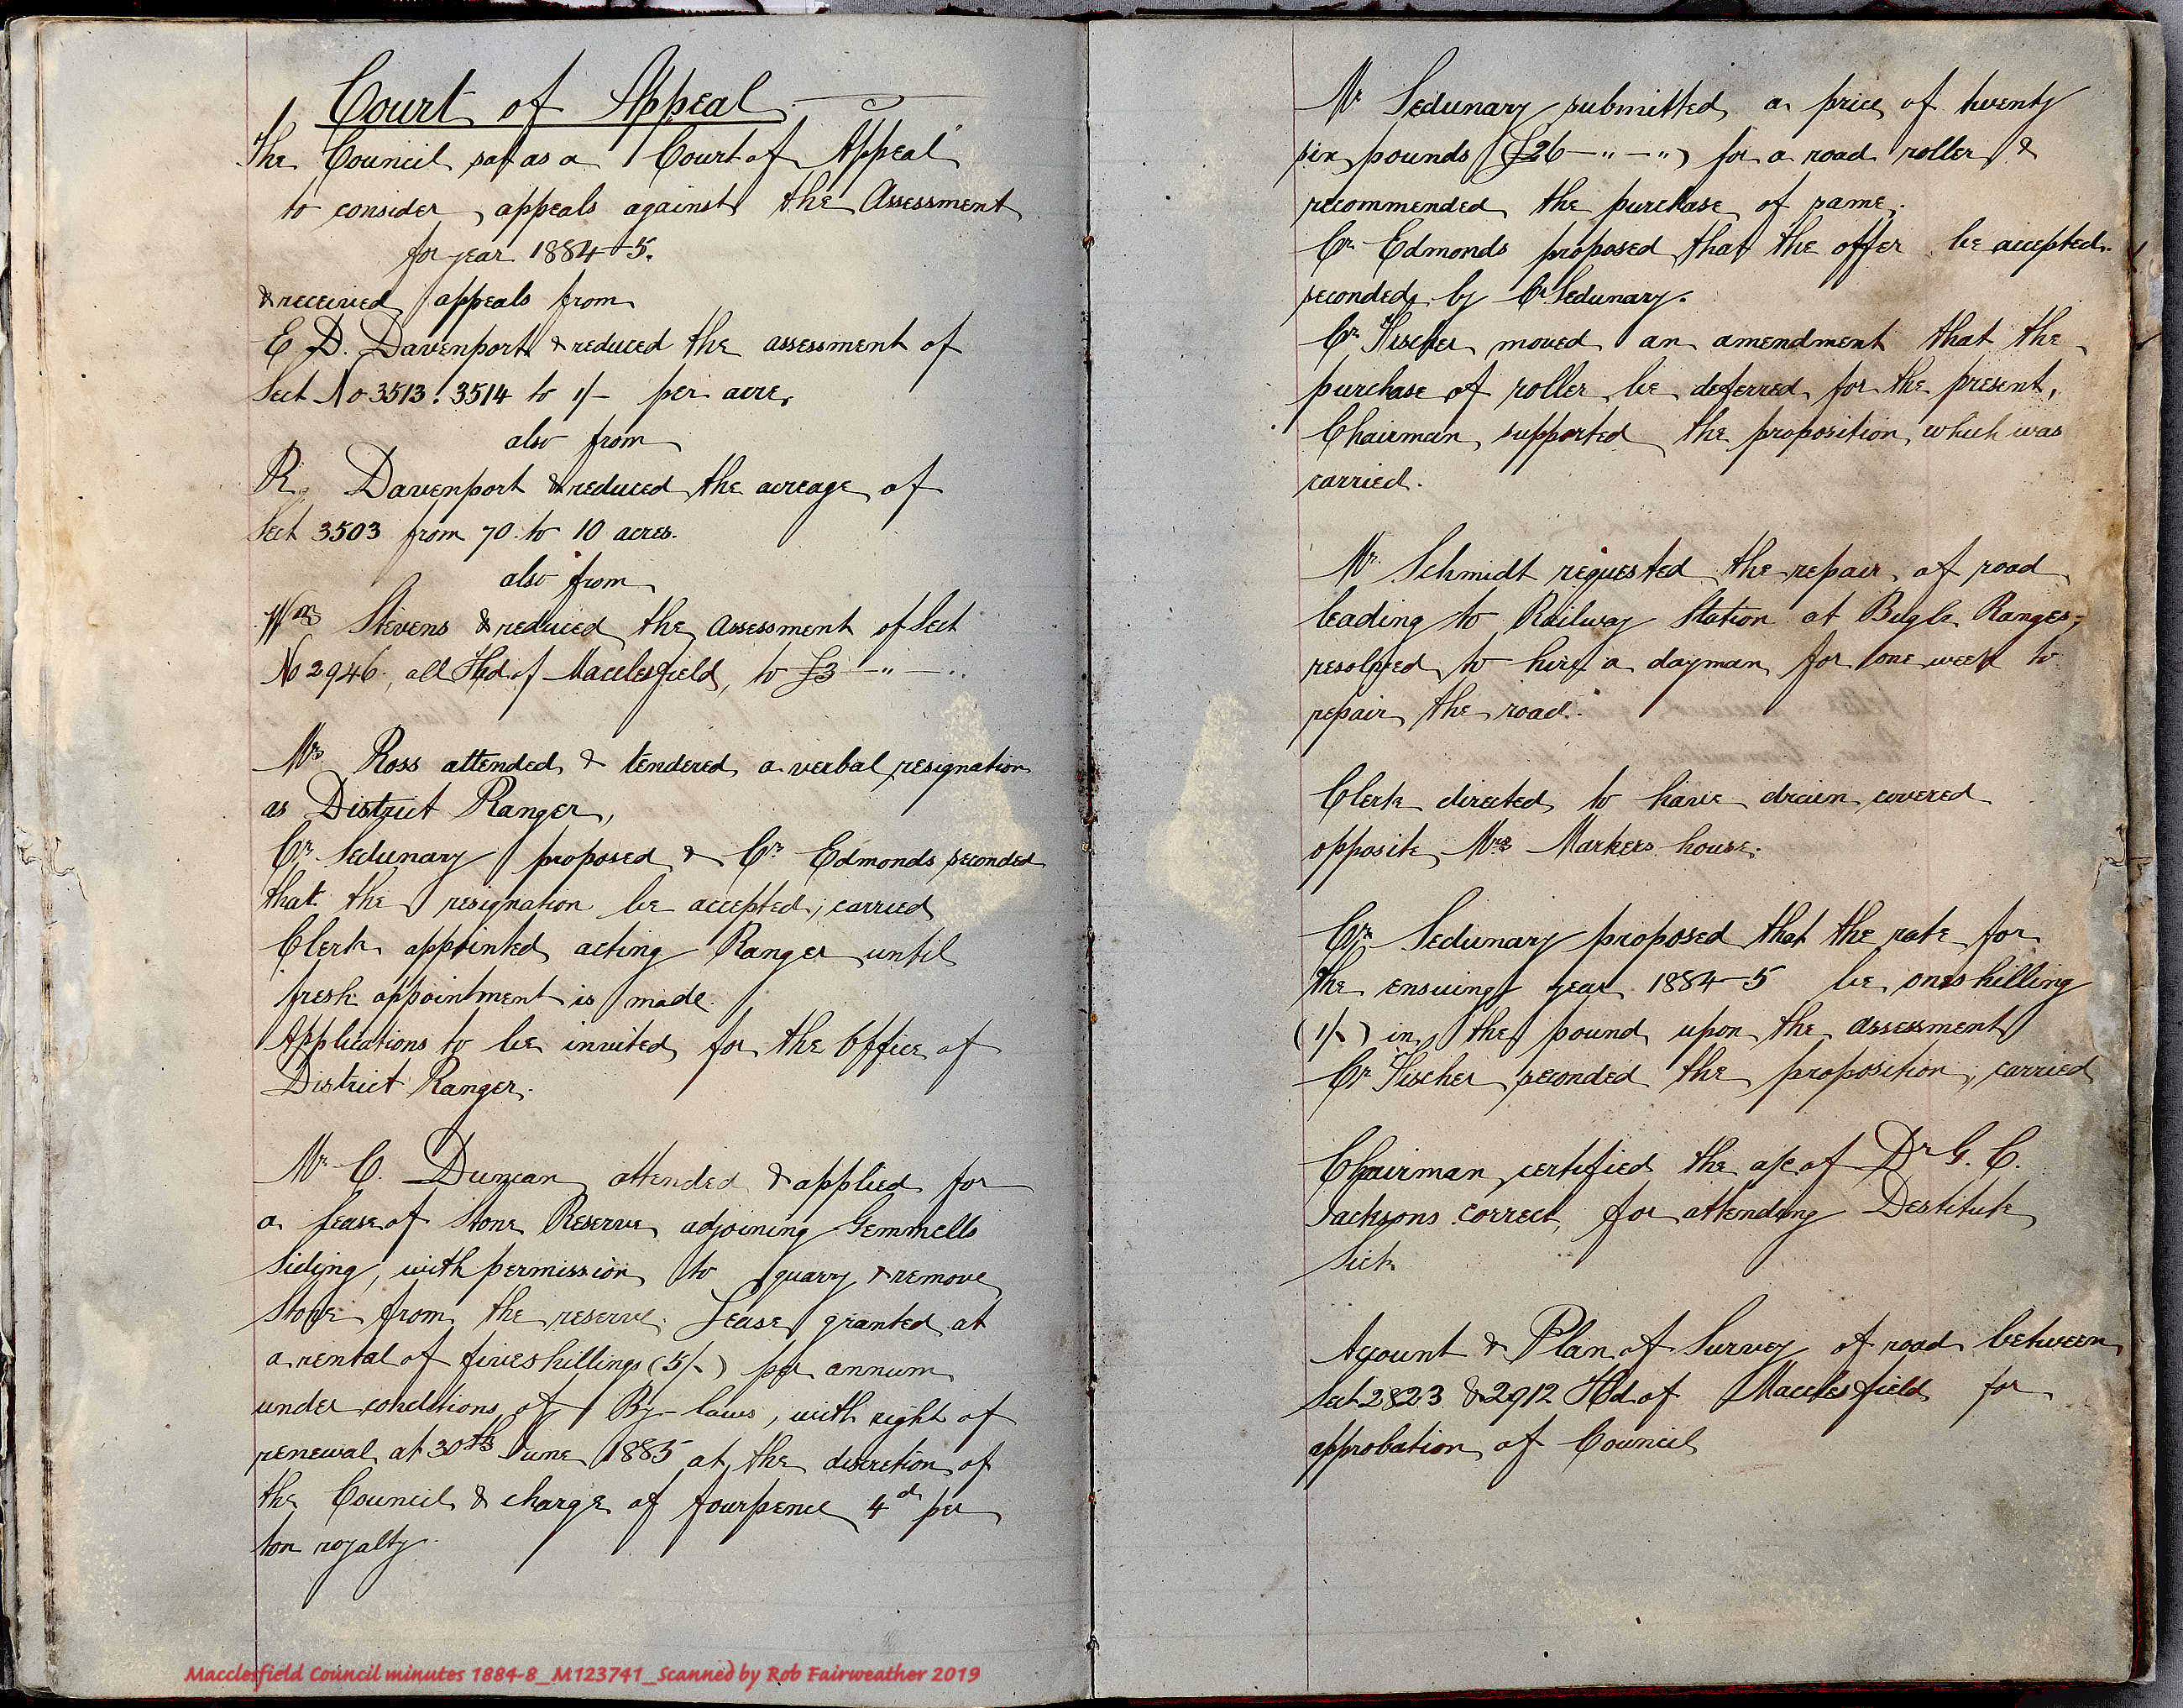 Court of Appeal
The Council sat as a "Court of Appeal"
to consider appeals against the Assessment
for year 1884-5.
& received appeals from
E D. Davenport & reduced the assessment of
Sect No 3513. 3514 to 1/- per acre,
also from
R. Davenport & reduced the acreage of
Sect 3503 from 70 to 10 acres.
also from
Wm Stevens & reduced the assessment of Sect
No 2946, all Hd of Macclesfield, to £3-"-"
Mr Ross attended & tendered a verbal resignation
as District Ranger,
Cr Sedunary proposed & Cr Edmonds seconded
that the resignation be accepted; carried
Clerk appointed acting Ranger until
fresh appointment is made.
Applications to be invited for the Office of
District Ranger.
Mr C. Duncan attended & applied for
a lease of Stone Reserve adjoining Gemmells
Siding, with permission to quarry & remove
Stone from the reserve. Lease granted at
a rental of five shillings (5/-) per annum
under conditions of By-laws, with right of
renewal at 30th June 1885 at the discretion of
the Council & charge of fourpence 4d per
ton royalty.
Mr Sedunary submitted a price of twenty
six pounds (£26-"-") for a road roller &
recommended the purchase of same.
Cr Edmonds proposed that the offer be accepted.
seconded by Cr Sedunary.
Cr Fischer moved an amendment that the
purchase of roller be deferred for the present,
Chairman supported the proposition, which was
carried.
Mr Schmidt requested the repair of road
leading to Railway Station at Bugle Ranges;
resolved to hire a dayman for one week to
repair the road.
Clerk directed to have drain covered
opposite Mrs Markers house.
Cr Sedunary proposed that the rate for
the ensuing year 1884-5 be one shilling
(1/-) in the pound upon the assessment
Cr Fischer seconded the proposition; carried
Chairman certified the a/c of Dr G. C.
Jacksons correct, for attending Destitute
Sick
Account & Plan of Survey of road between
Sect 2823 & 2912 Hd of Macclesfield for
approbation of Council
Macclesfield Council minutes 1884-8_M123741_Scanned by Rob Fairweather 2019